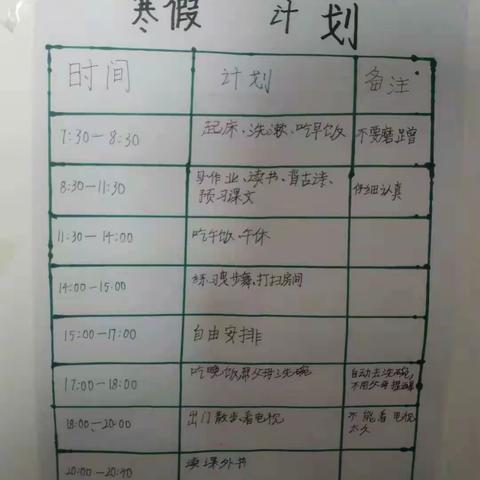 寒假 计划
时间 计划 备注
7:30—8:30 起床、洗漱、吃早饭 不要磨蹭
8:30—11:30 写作业、读书、背古诗、 仔细认真
预习课文
11:30—14:00 吃午饭、午休
14:00—15:00 练习曳步舞、打扫房间
15:00—17:00 自由安排
17:00—18:00 吃晚饭帮父母洗碗 自动去洗碗,
不用父母提醒
18:00—20:00 出门散步、看电视 不能看电视
太久
20:00—20:40 读课外书